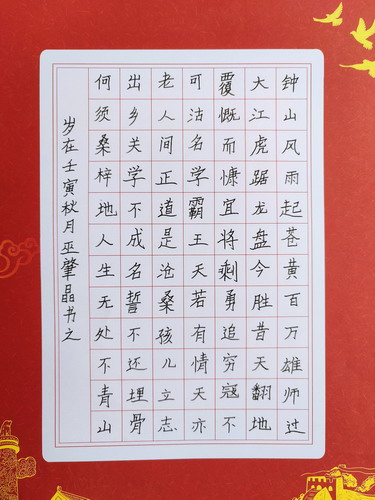 钟山风雨起苍黄百万雄师过
大江虎踞龙盘今胜昔天翻地
覆慨而慷宜将剩勇追穷寇不
可沽名学霸王天若有情天亦
老人间正道是沧桑孩儿立志
出乡关学不成名誓不还埋骨
何须桑梓地人生无处不青山
岁在壬寅秋月巫肇晶书之